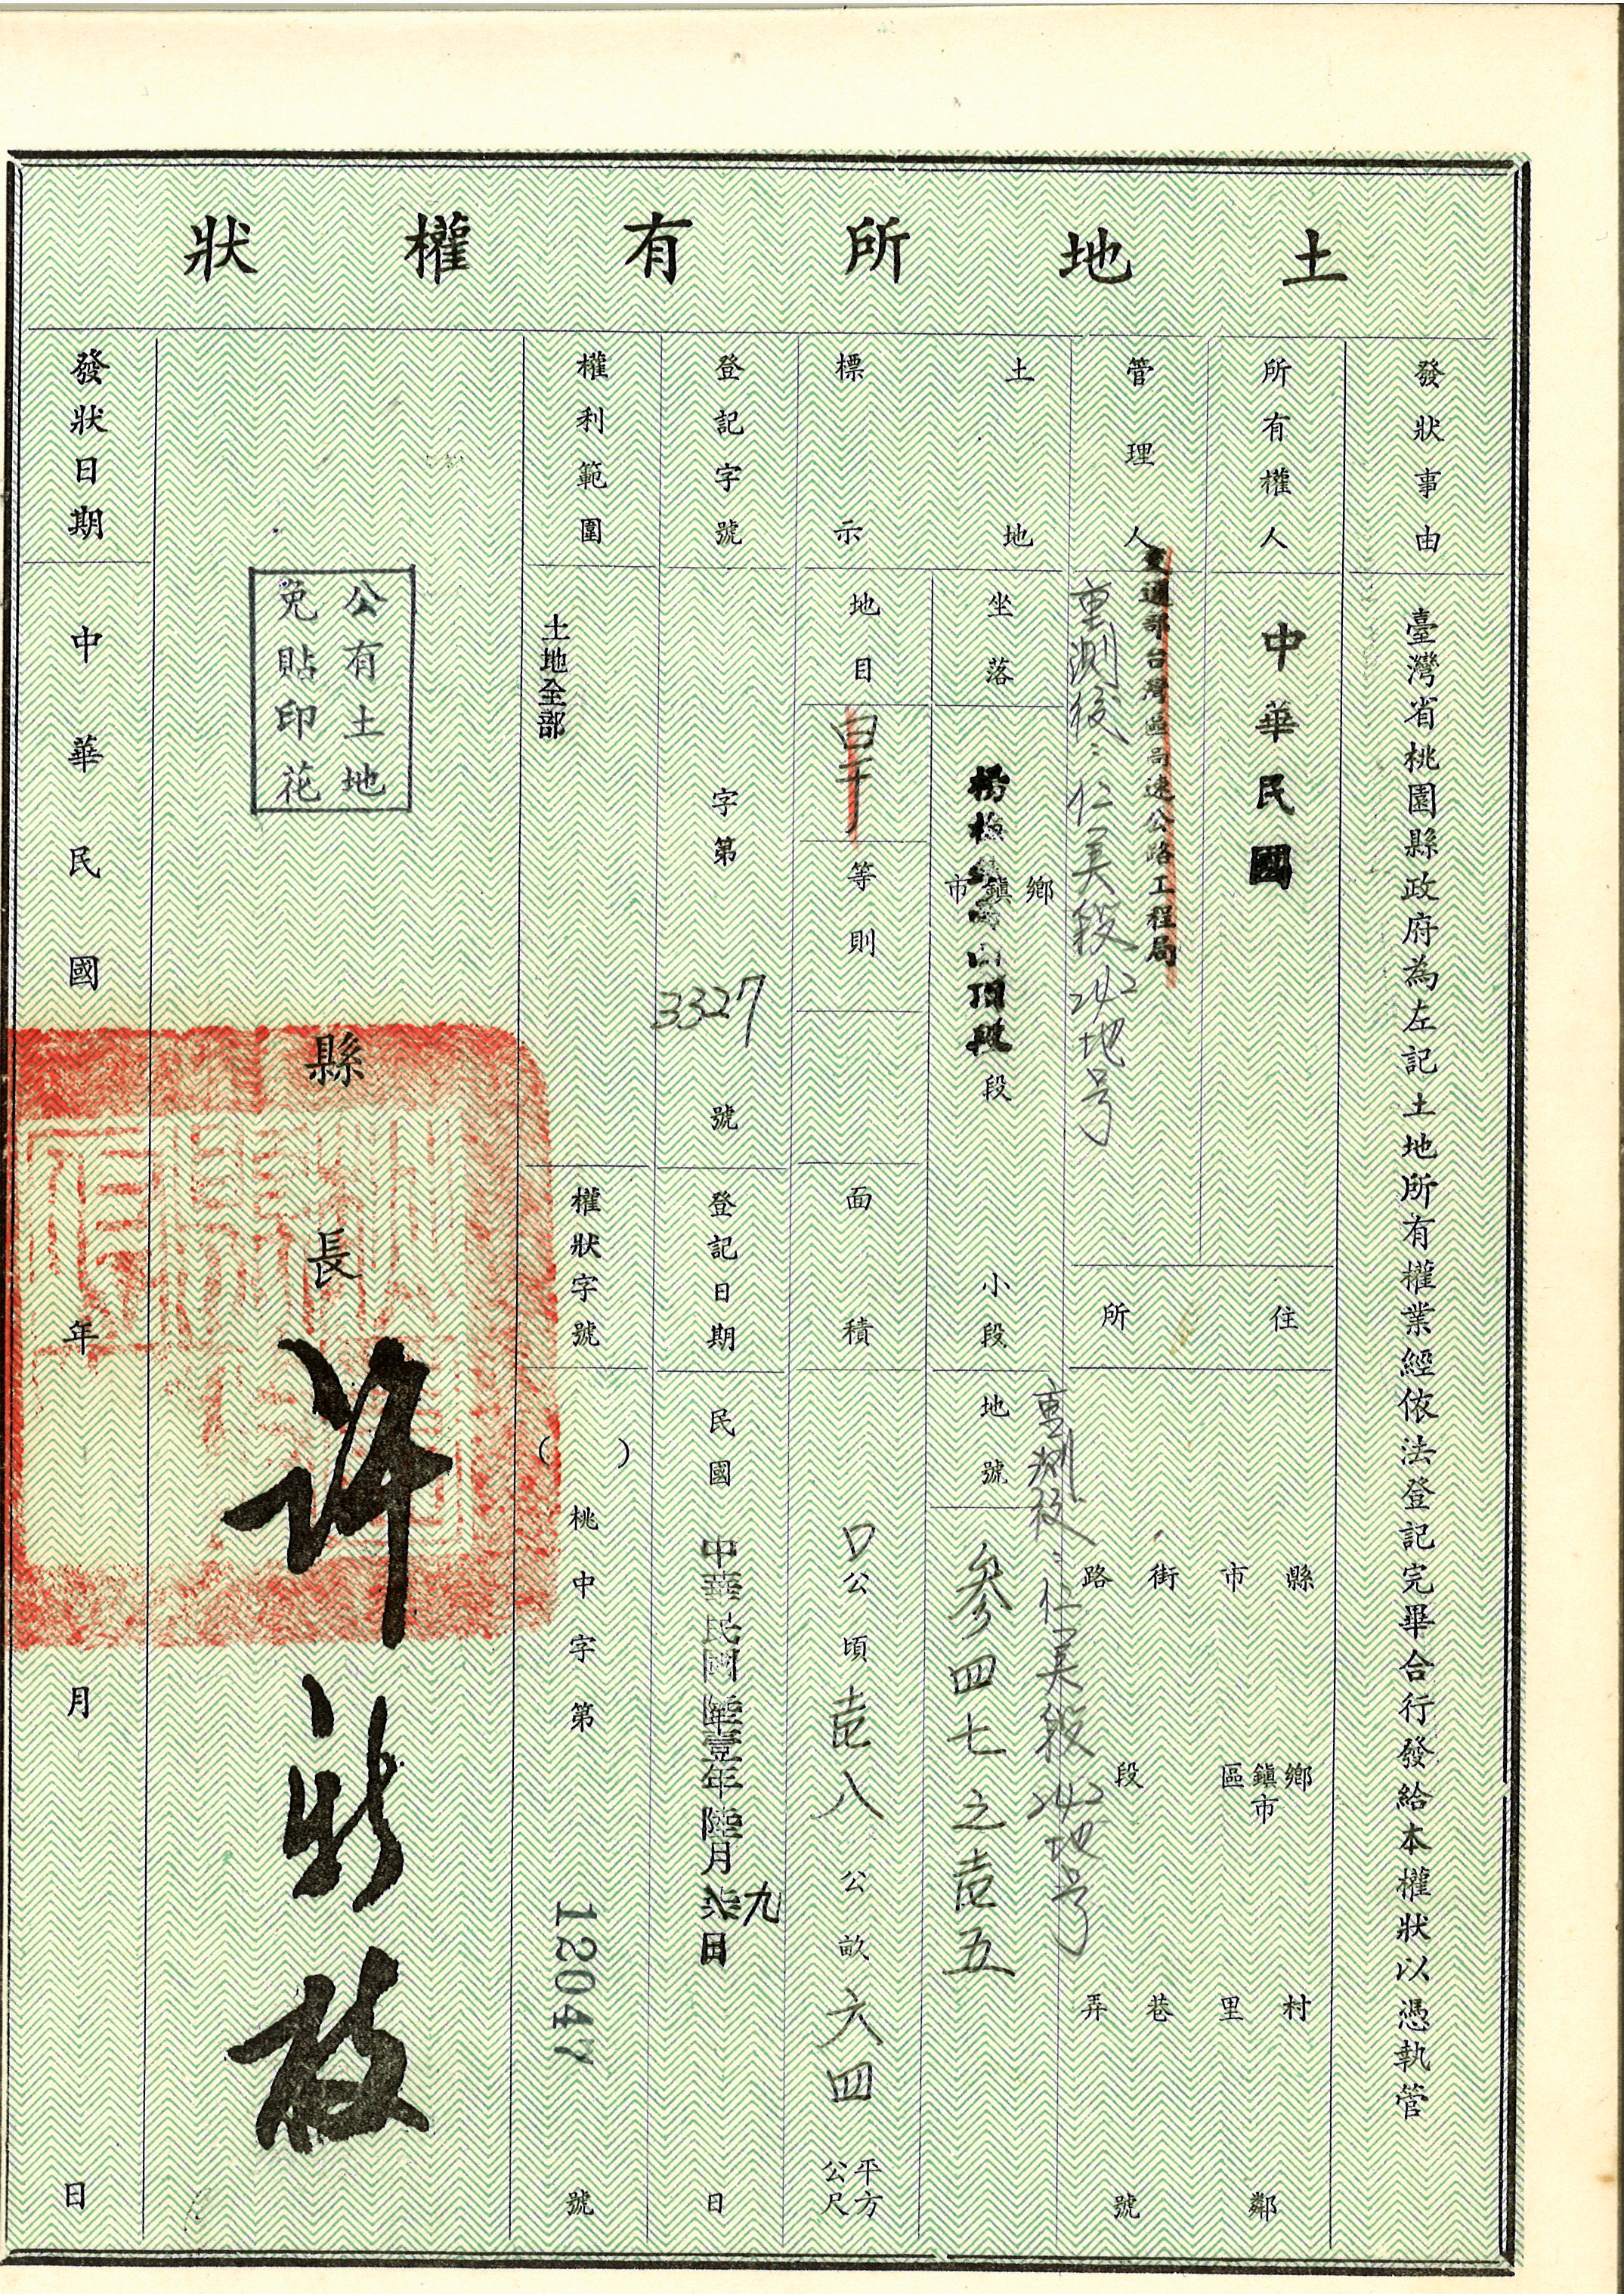 土地所有權狀
發狀事由
臺灣省桃園縣政府為左記土地所有權業經依法登記完畢合行發給本權狀以憑執管
所有權人
中華民國
管理人
交通部台灣區高速公路工程局
重測後:仁美段242地号
住所
縣市街路
鄉鎮市區
段
村里巷弄
鄰
號
土地標示
坐落
鄉鎮市
楊梅鎮
山頂段
段
小段
地號
參四七之壹五
重測後:仁美段242地号
地目
等則
面積
口公頃壹八公畝六四平方公尺
登記字號
字第3327號
登記日期
民國
中華民國陸壹年陸月
九
日
日
權利範圍
土地全部
權狀字號
( )桃中字第12047號
公有土地
免貼印花
縣長
許新枝
發狀日期
中華民國 年 月 日